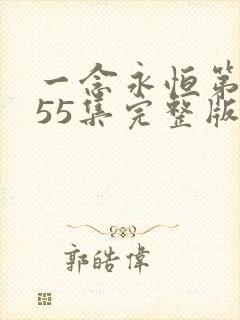 一念永恒第
55集完整版
郭皓偉